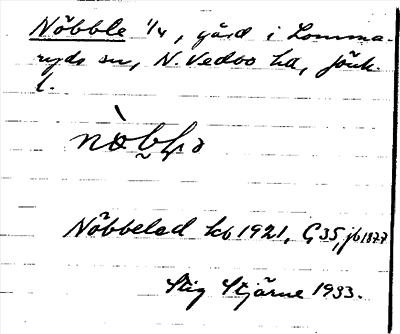 Nöbble 1/4, gård i Lomma-
ryds sn, N. Vedbo hd, Jönk.
l.
Nöbbeled hb 1921, G 35, jb 1877
Stig Stjärne 1933.